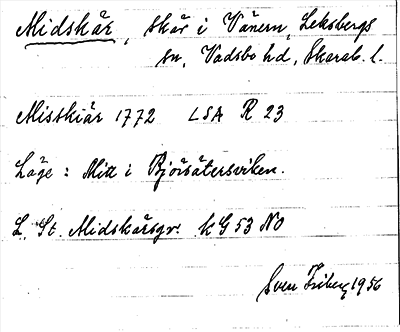 Midskär, skär i Vänern, Leksbergs
sn, Vadsbo hd, Skarab. l.
Misskiär 1772 LSA R 23
Läge: Mitt i Björsätersviken.
L. St. Midskärsgr. KG 53 NO
Sven Friberg 1956